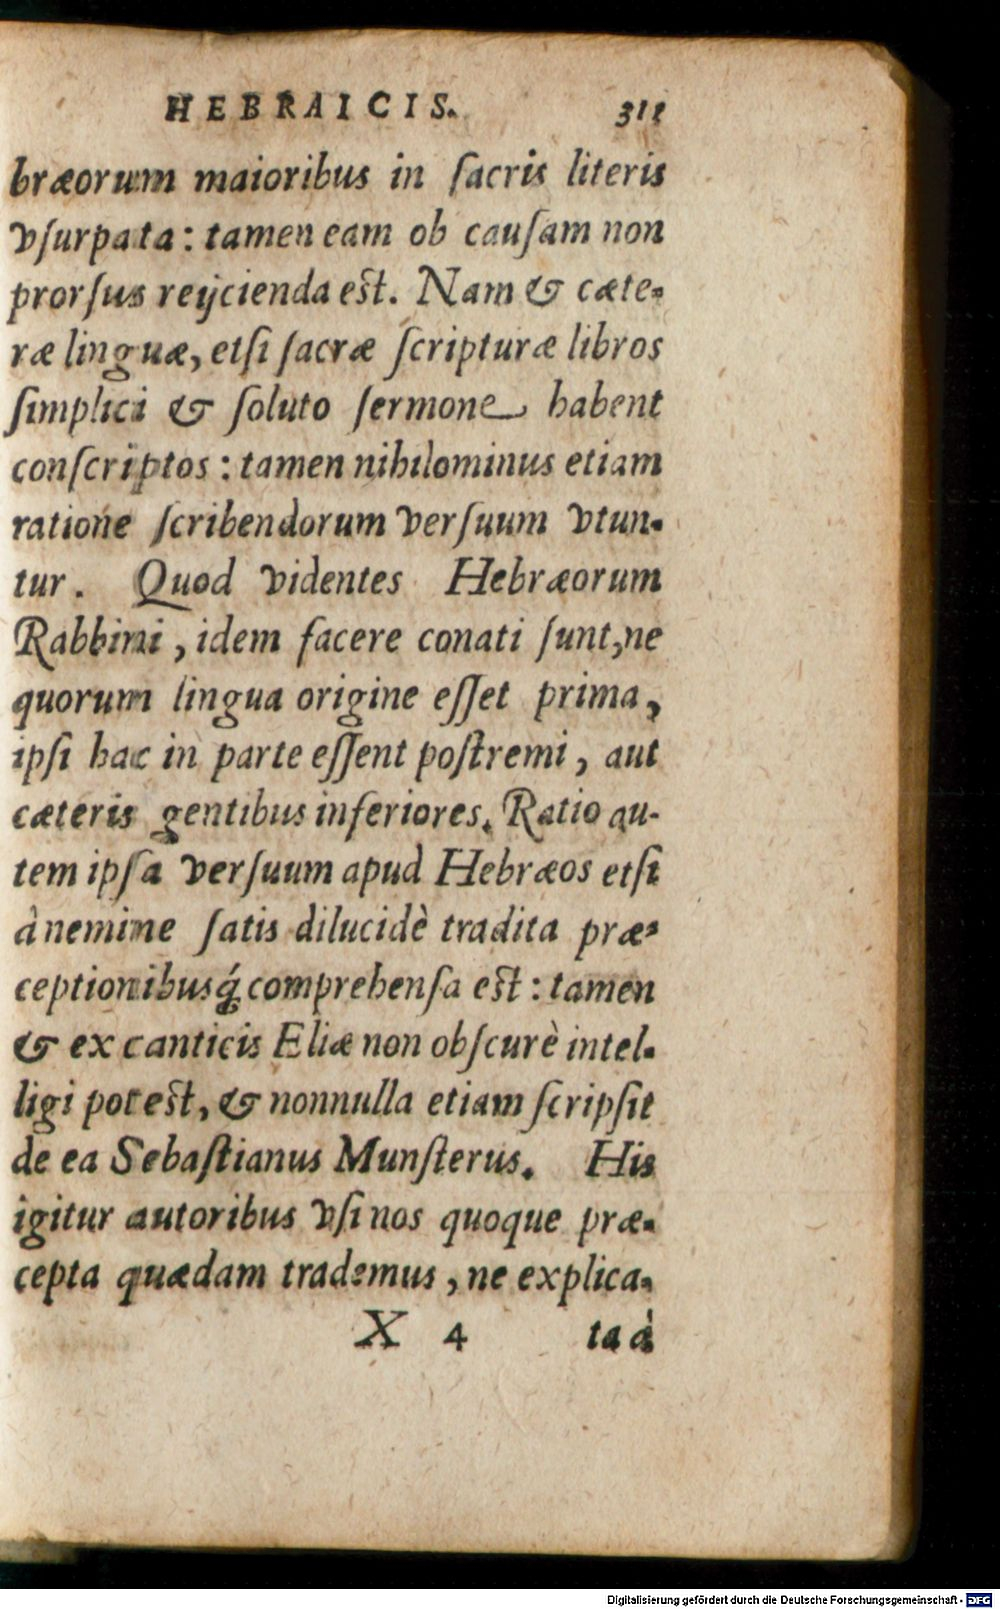 HEBRAICIS. 311
bræorum maioribus in ſacris literis
vſurpata: tamen eam ob cauſam non
prorſus reijcienda eſt. Nam & cæte-
ræ linguæ, etſi ſacræ ſcripturæ libros
ſimplici & ſoluto ſermone habent
conſcriptos: tamen nihilominus etiam
ratione ſcribendorum verſuum vtun-
tur. Quod videntes Hebræorum
Rabbini, idem facere conati ſunt, ne
quorum lingua origine eſſet prima,
ipſi hac in parte eſſent poſtremi, aut
cæteris gentibus inferiores. Ratio au-
tem ipſa verſuum apud Hebræos etſi
à nemine ſatis dilucidè tradita præ-
ceptionibusq́ꝫ comprehenſa eſt: tamen
& ex canticis Eliæ non obſcurè intel-
ligi poteſt, & nonnulla etiam ſcripſit
de ea Sebaſtianus Munſterus. His
igitur autoribus vſi nos quoque præ-
cepta quædam trademus, ne explica-
X 4 ta à
Digitalisierung gefördert durch die Deutsche Forschungsgemeinschaft - DFG